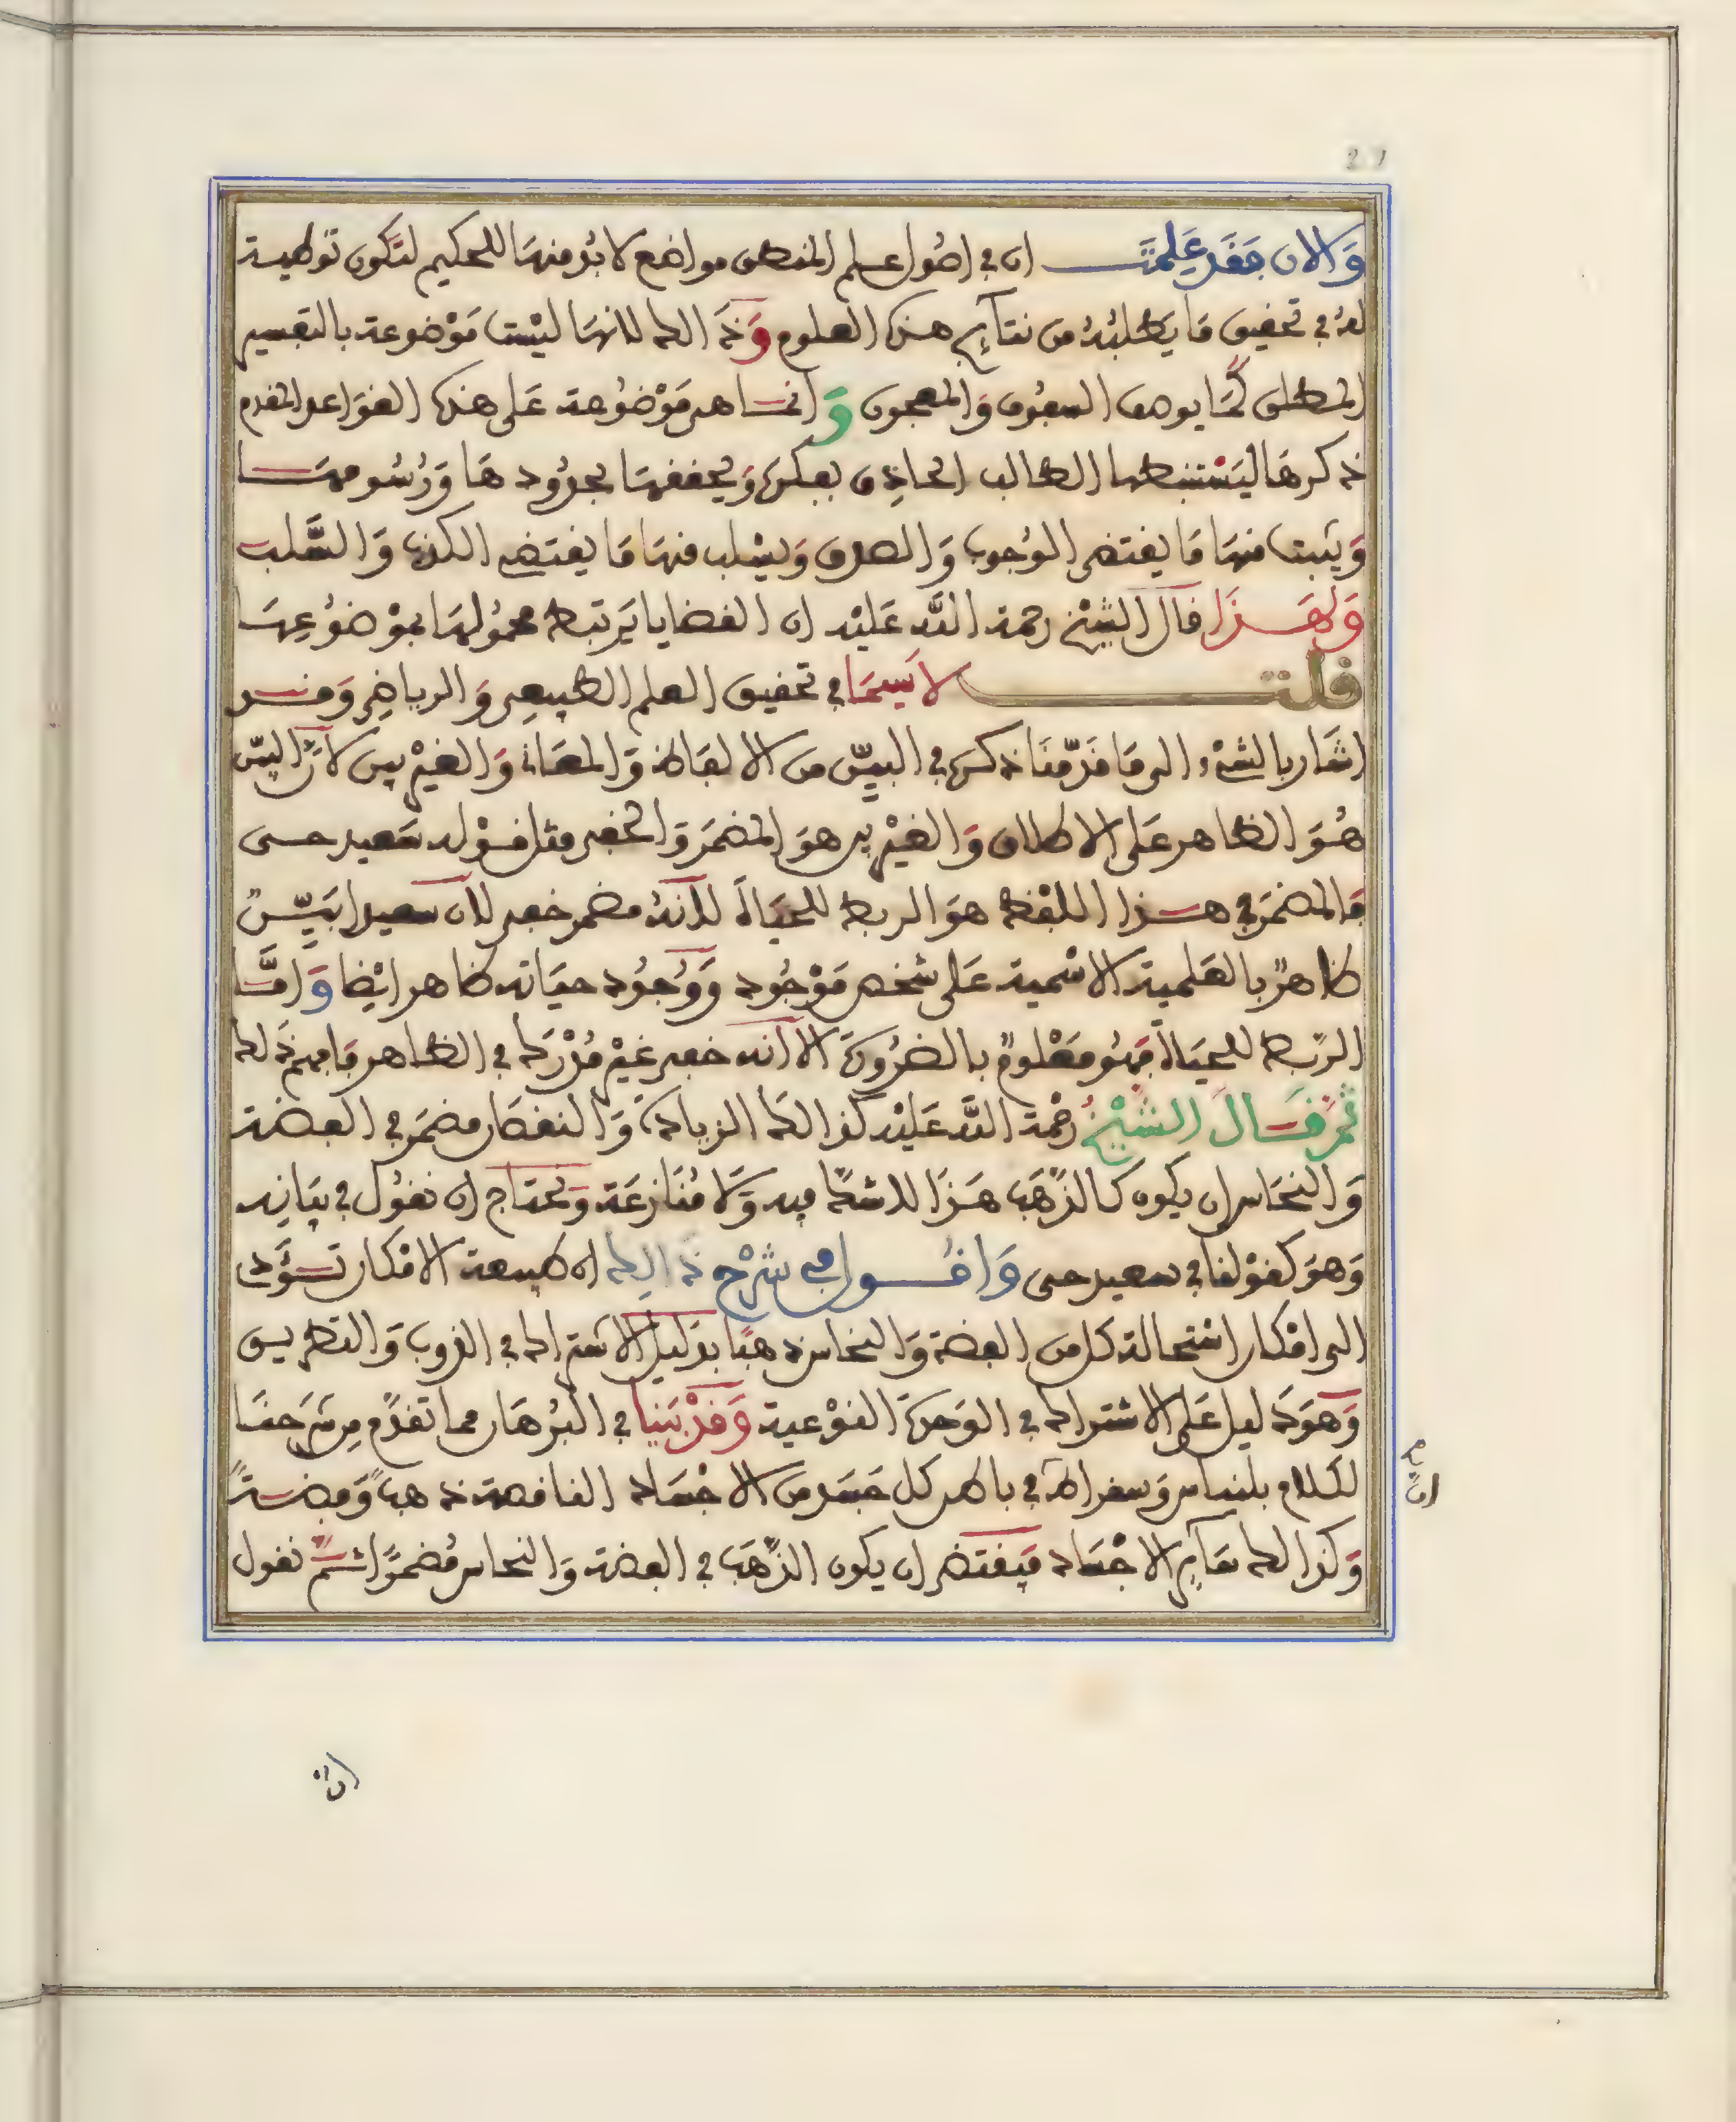 وَالان فَقَد عَلِمْتَ ان في اصُول علم المنطق مواضع لا بُد منهَا للحكيم لتكون توطية
لهُ في تحقيق مَا يَطلبُهُ من نتآئج هذه العلوم وَذَالك لانهَا ليْست مَوْضوعة بالتقسيم
المطلق كمَا يوصف المعجُون وَانمَا هى مَوْضُوعة عَلى هذه القوَاعد المقدم
ذكرهَا ليَسْتنبطها الطالب الحاذِق بفكره وَيحققهَا بحدُود هَا وَرُسُومهَا
وَيثبت منهَا مَا يقتضى الوُجوب وَالصدق وَيسْلب منهَا مَا يقتضى الكذب وَالسَّلب
وَلِهَذَا قالَ الشيْخ رحمة اللَّه عَليْه ان القضايا يَرتبط محمُولهَا بموْضوُعِهَا
قلت لاسِيمَا في تحقيق العلم الطبيعى وَالرياضِى وَقد
اشَار بالشىْء الى مَا قدّمْنَا ذكره في البيّن من الالفاظ وَالمعَانى وَالغيْر بين لانَّ البيّن
هُوَ الظاهر عَلى الاطلاق وَالغيْر بين هوَ المضمَر وَالخفى مثل قوْله سَعيد حى
فالمضمَر في هذا اللفظ هوَ الربط للحيَاة لانهُ مضمر خفى لان سعيدا بَيّن
ظاهرٌ بالعَلمية الاسْمية عَلى شخص مَوْجُود وَوُجُود حيَاته ظاهر ايْضا وَامَّا
الرّبط للحيَاة فهُو مَعْلومٌ بالضرُورَة الا انه خفى غيْر مُدْرَك في الظاهر فافهم ذَلك
ثم قَالَ الشيْخُ رحْمة اللَّه عَليْه كذالك الزيادة وَالنقصَان مضمَر في الفضة
وَالنحَاس ان يكون كالذهَب هَذا لا شكّ فيه وَلا مُنَازعَة وَنحتاج ان نقوُل في بيَانِه
وَهوَ كقوْلنا في سعيد حى وَاقُول في شرْح ذَالِك ان طبيعة الامْكان تؤَدى
الى امْكان اسْتحالة كل من الفضة وَالنحاس ذهبًا بدَليل الاشتراك في الذوب وَالتطريق
وَهوَ دَليل عَلى الاشتراك في الوَحدَة النوْعية وَقدْ بَينا في البُرهَان مما تقدّم مِن شرحنَا
لكلام بلنياس وَسقراط في باطن كل جَسَد من الاجْسَاد الناقصة ذهبًا وَفضةً
وَكذالك سَآئر الاجْسَاد فيَقتضى ان يكون الذهَب في الفضة وَالنحاس مُضمرًا ثم نقول
انّ